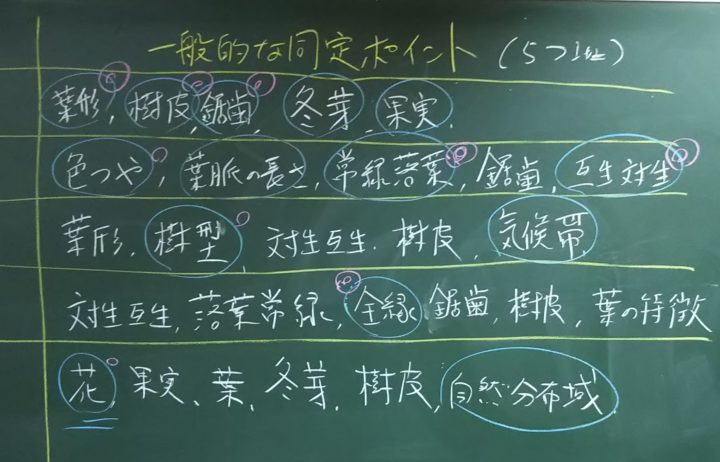 一般的な同定ポイント (5つ以上)
葉形, 樹皮, 鋸歯, 冬芽, 果実.
色つや, 葉脈の長さ, 常緑落葉, 鋸歯, 互生対生
葉形, 樹型, 対生互生. 樹皮, 気候帯
対生互生, 落葉常緑, 全縁, 鋸歯, 樹皮, 葉の特徴
花, 果実、葉、冬芽, 樹皮, 自然分布域